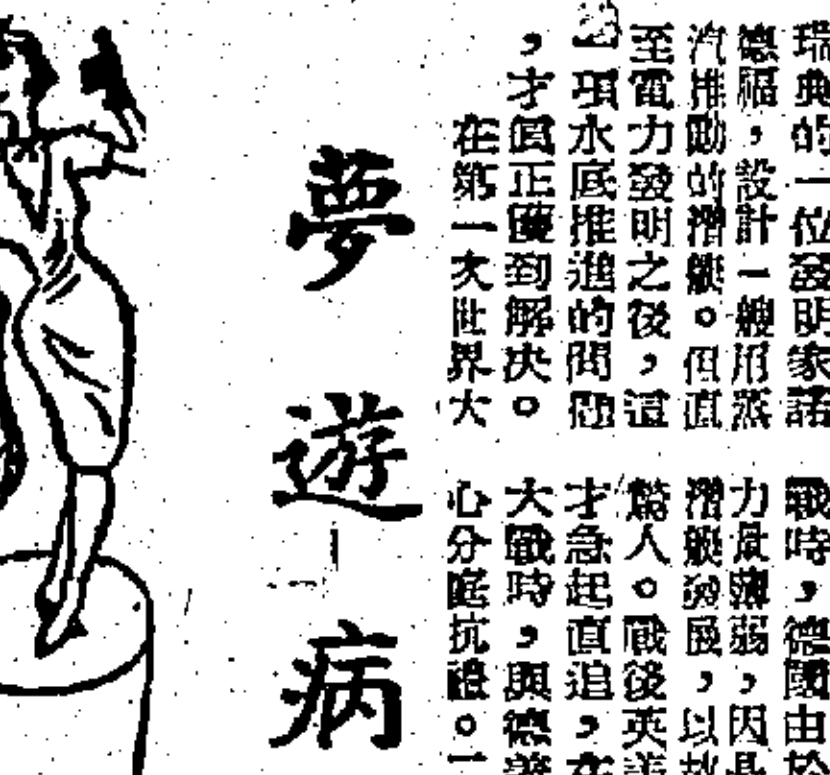 瑞典的一位發明家諾
德福，設計一艘用蒸
汽推動的潛艇。但直
至電力發明之後，這
一項水底推進的問題
，才眞正獲到解決。
在第一次世界大
戰時，德國由於
力量薄弱，因
潛艇發展，以
驚人。戰後英
才急起直追，在
大戰時，與德
心分庭抗禮。一
夢遊病